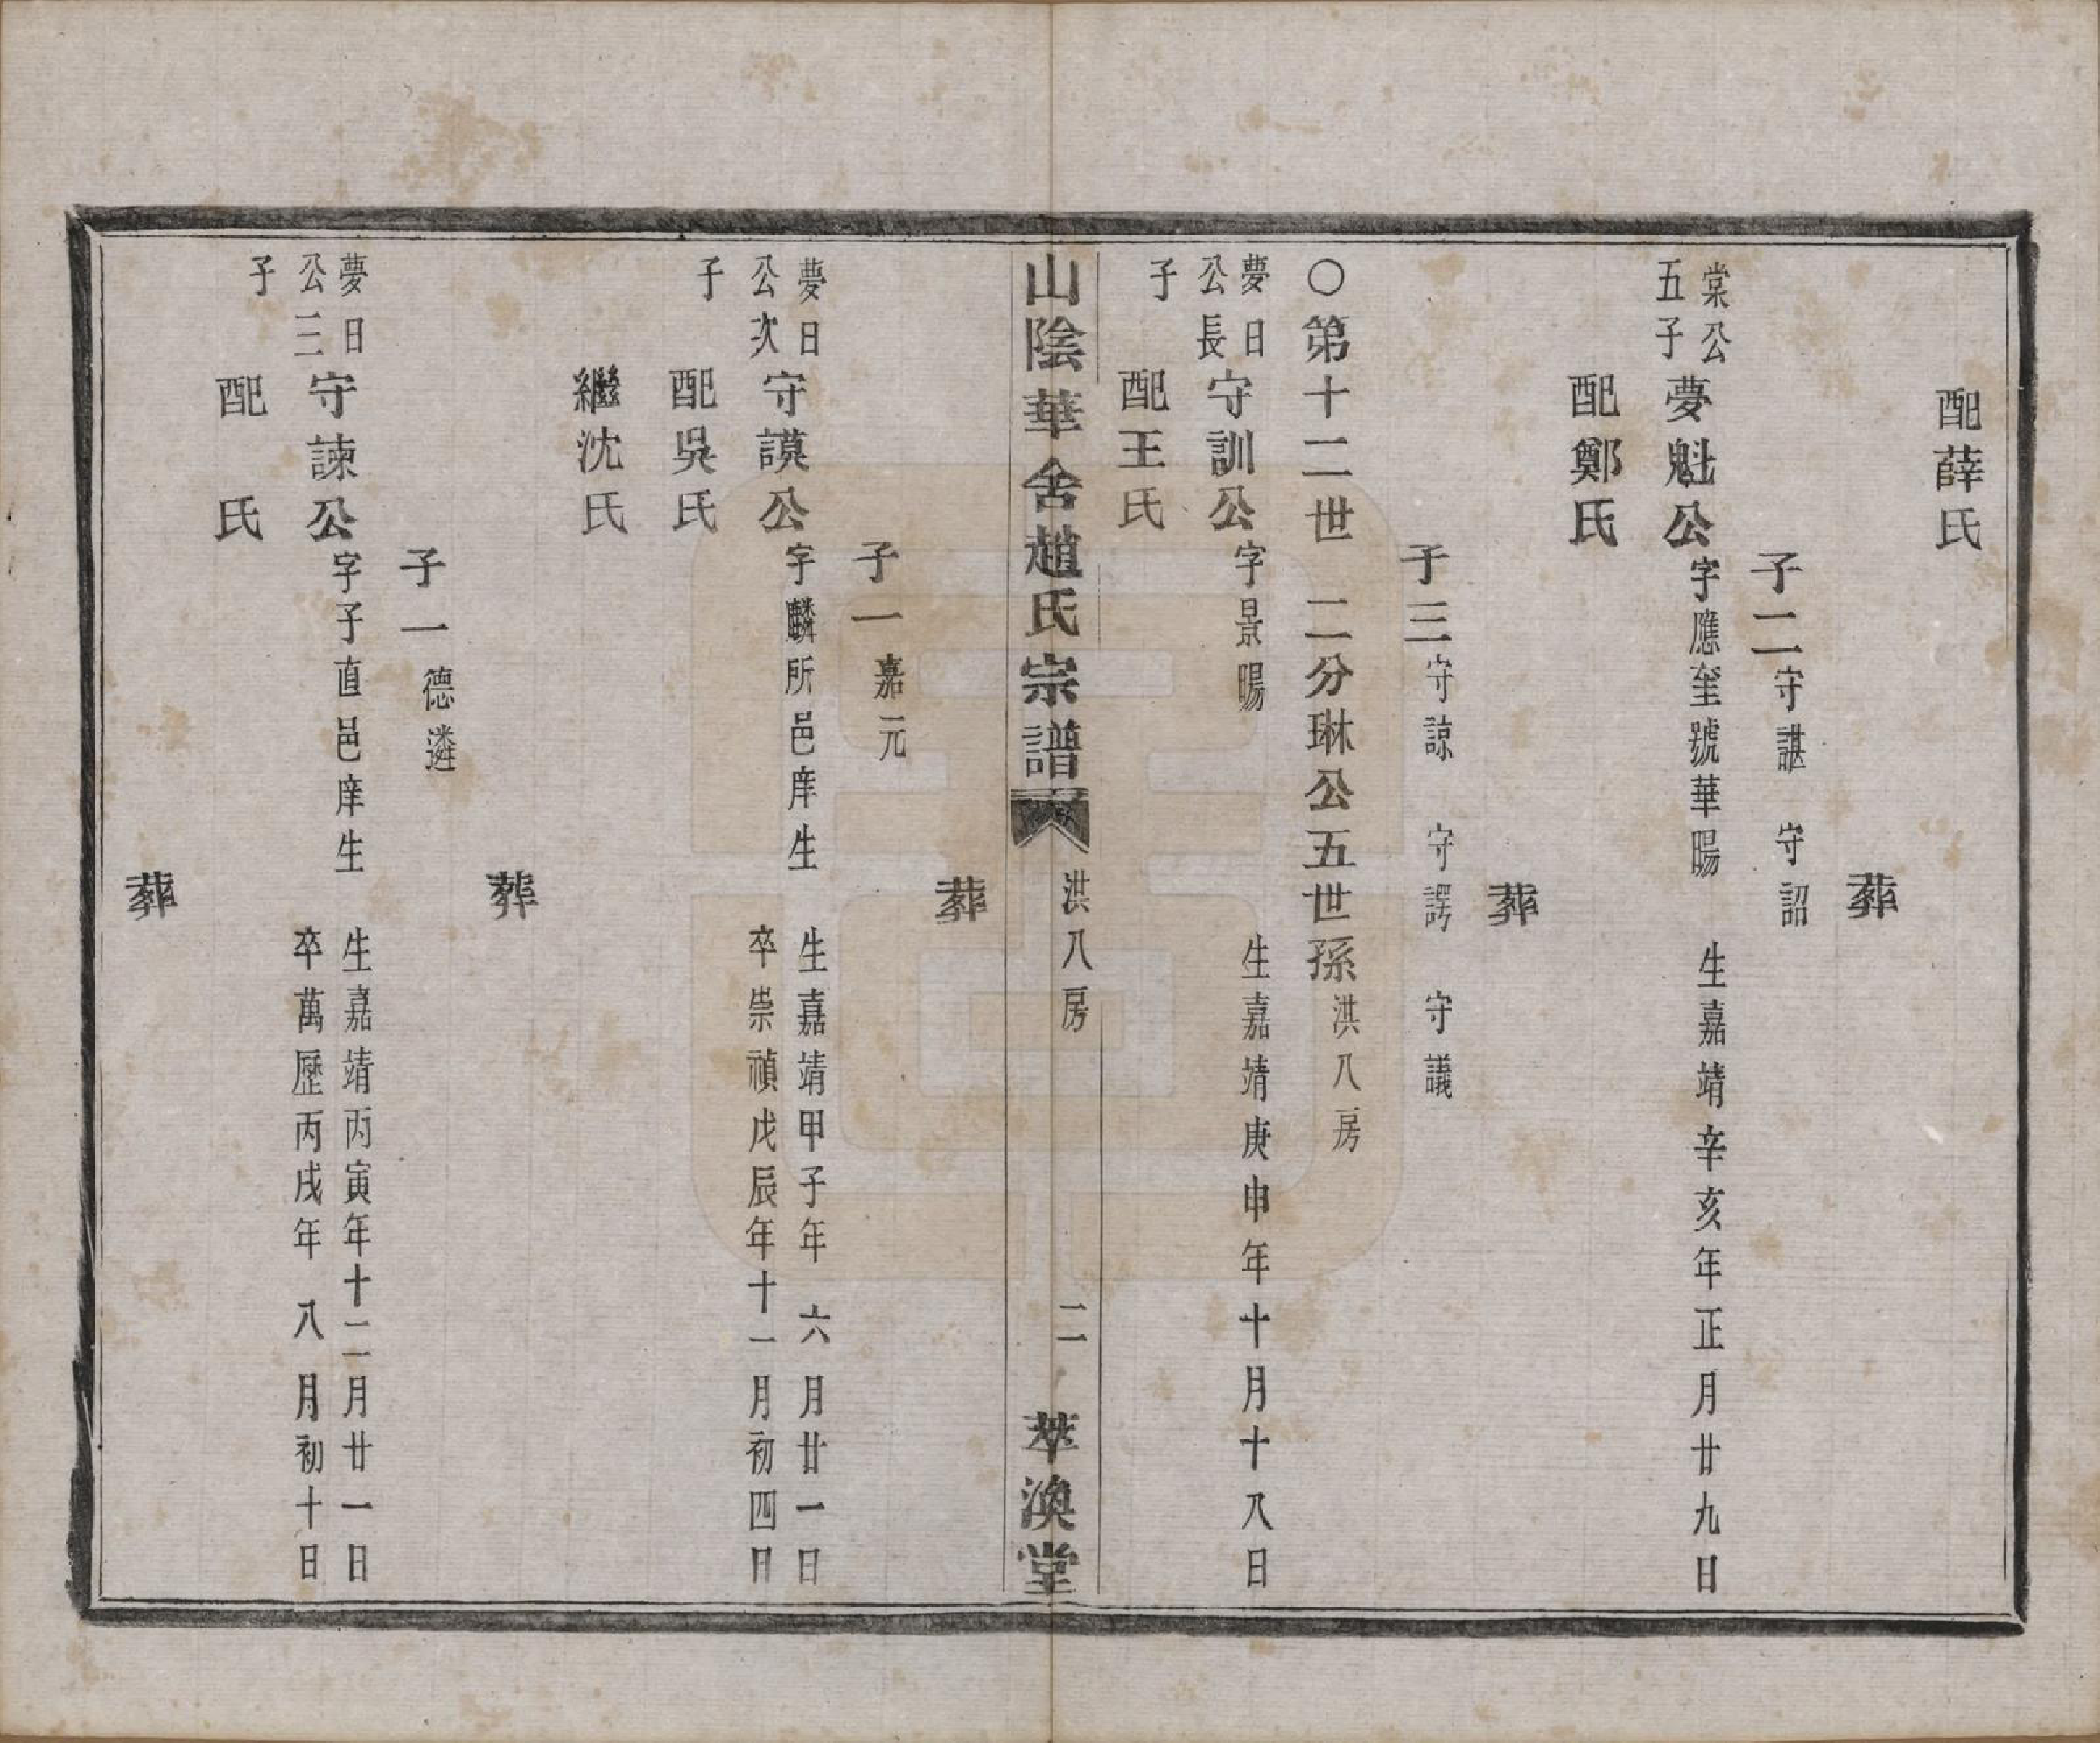 配薛氏
葬
子二守諶 守詔
棠公五子夢魁公字應奎號華暘 生嘉靖辛亥年正月廿九日
配鄭氏
葬
子三守諒 守諤 守議
○第十二世 二分琳公五世孫洪八房
夢日公長子守訓公字景暘 生嘉靖庚申年十月十八日
配王氏
山陰華舍趙氏宗譜 洪八房 二 萃渙堂
葬
子一嘉元
夢日公次子守謨公字麟所邑庠生 生嘉靖甲子年六月廿一日 卒崇禎戊辰年十一月初四日
配吳氏
繼沈氏
葬
子一德遴
夢日公三子守諫公字子直邑庠生 生嘉靖丙寅年十二月廿一日 卒萬歷丙戌年八月初十日
配 氏
葬